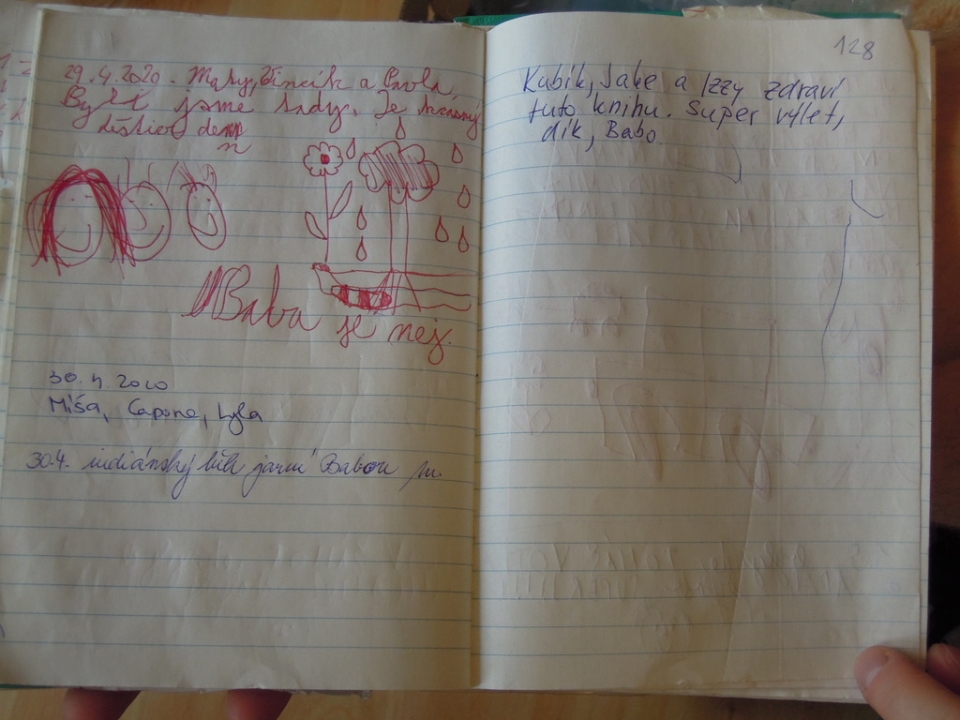 29.4.2020. Maky, a Pavla,
Byli jsme tady. Je krásný
deštivý den
n
Baba je nej.
30.4.2020
Míša, Capone, Lyla
30.4. indiánský běh jarní Babou
128
Kubík, Jake a Izzy zdraví
tuto knihu. Super výlet,
dík, Babo.